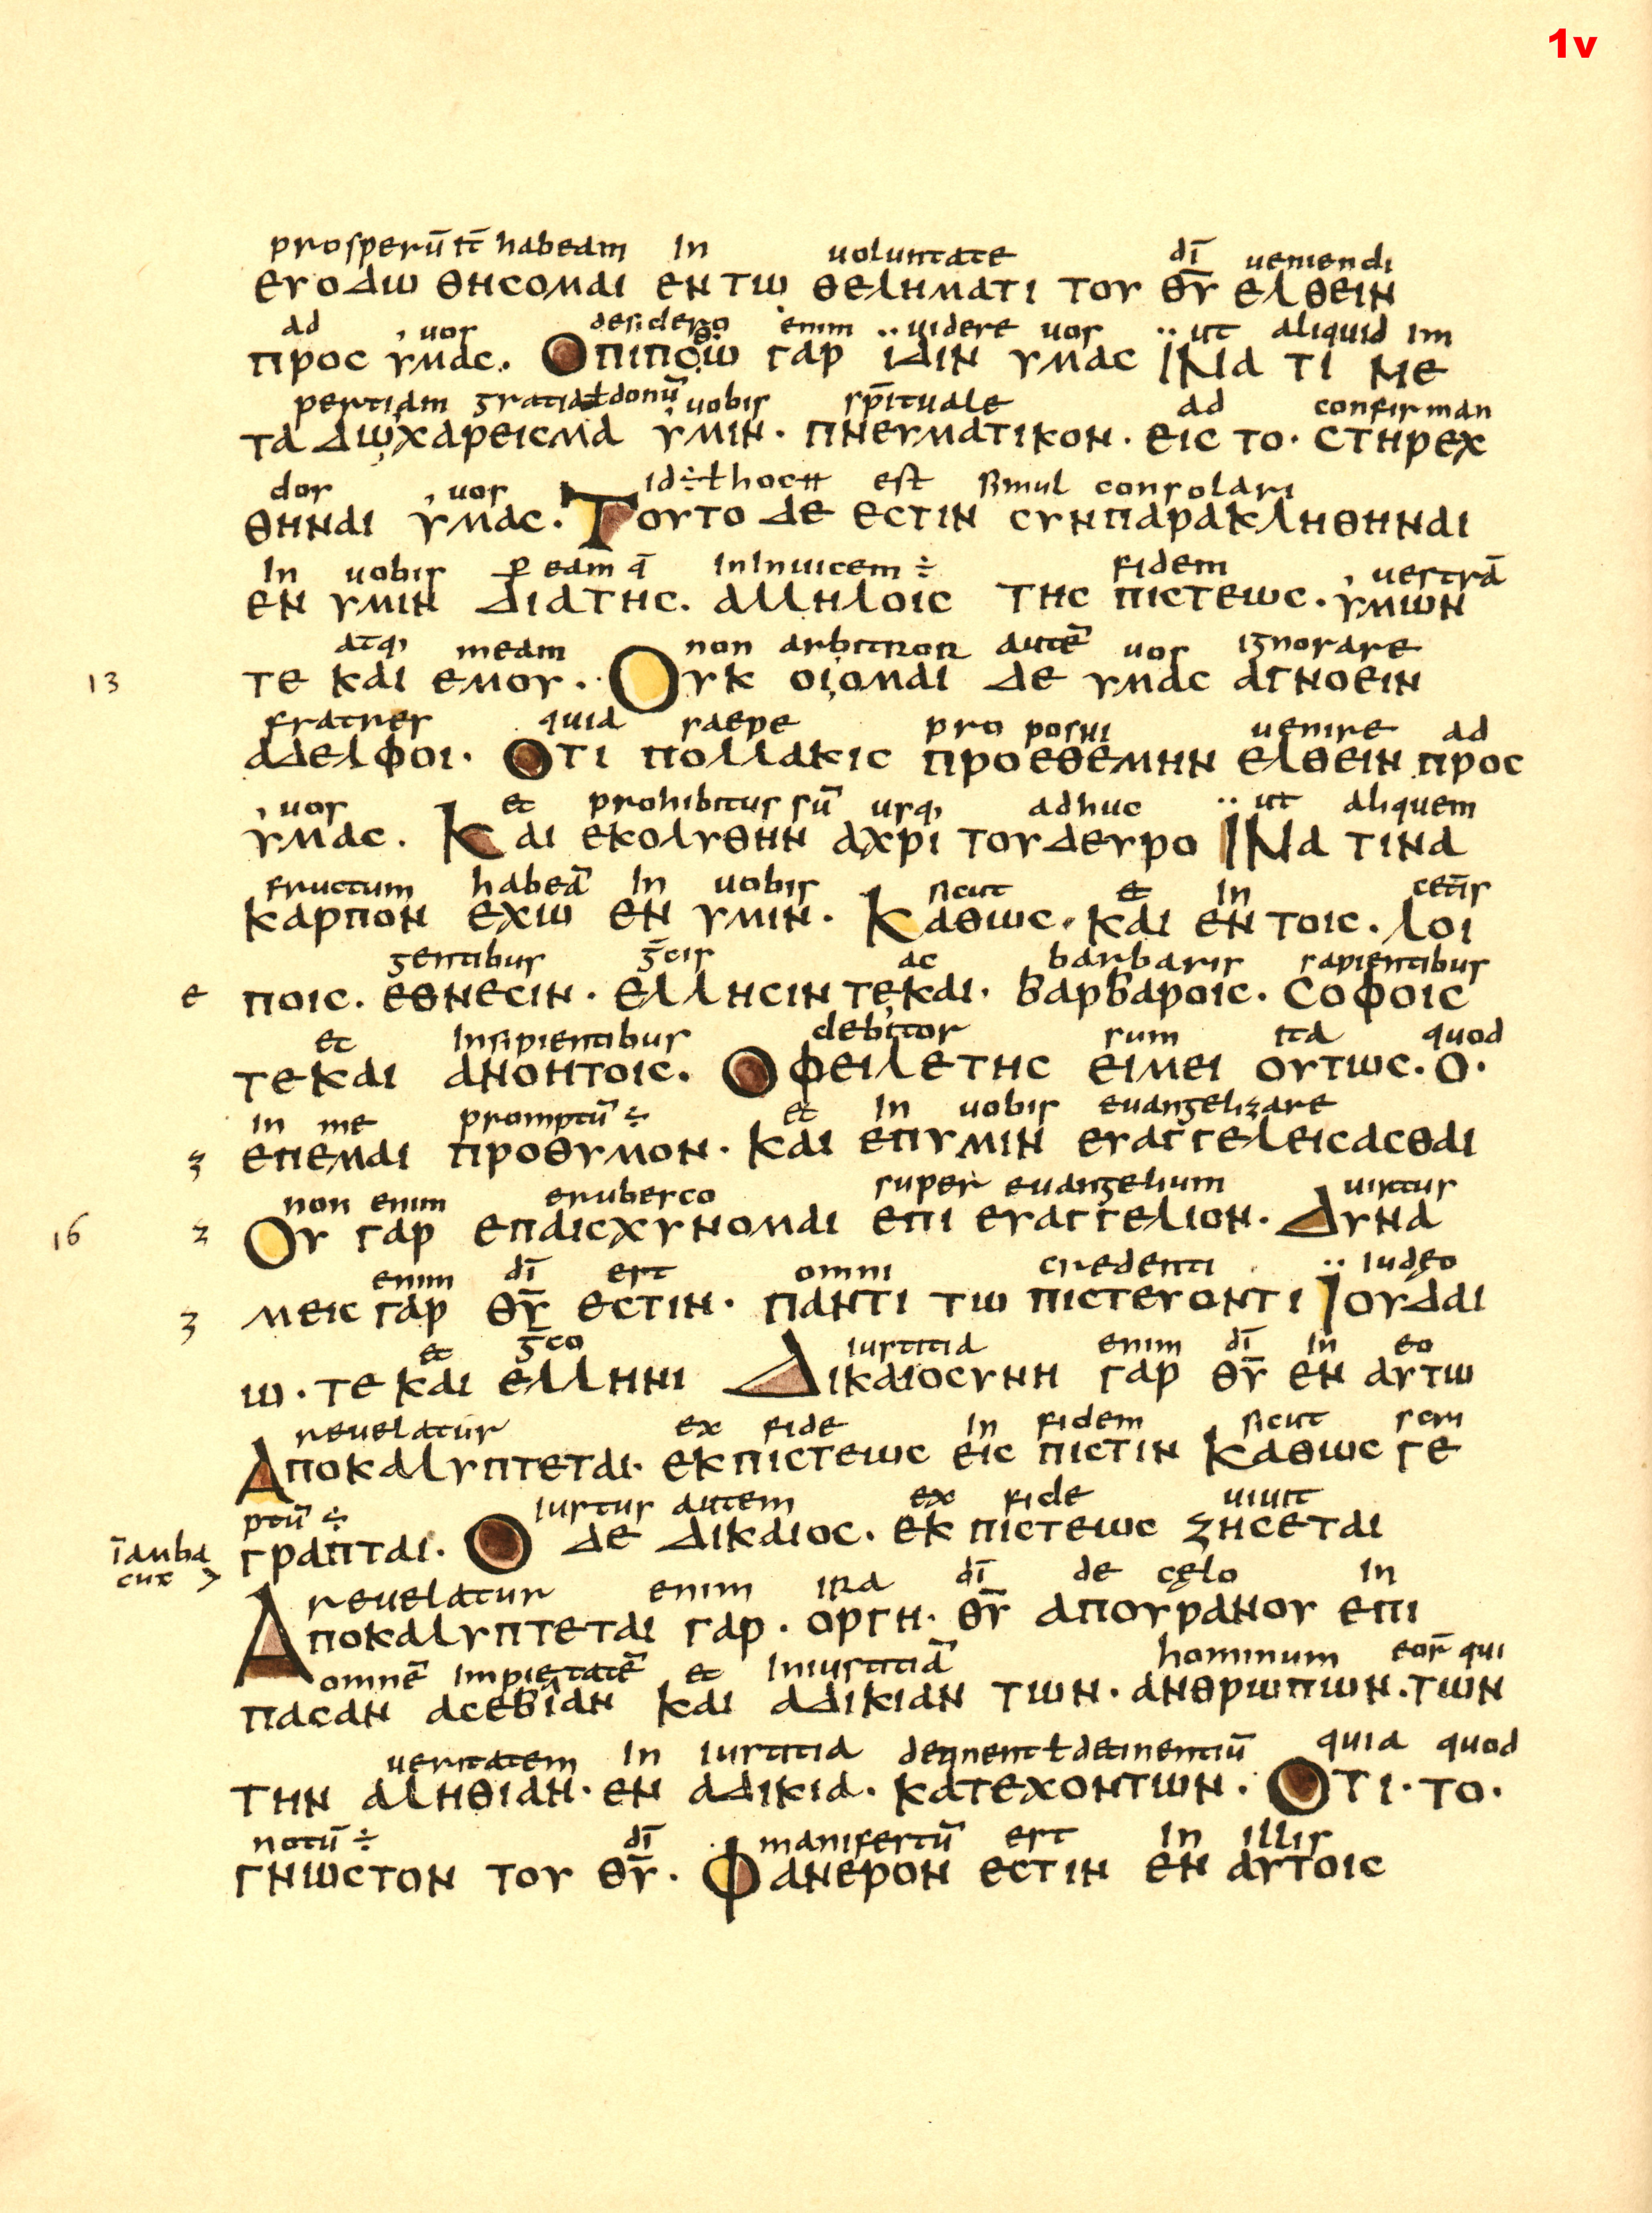 1v
prosperū iť habeam In uoluntate dī ueniendi
ευοδω θησομαι εν τω θεληματι του θ̅υ̅ ελθειν
ad uos desidero enim uidere uos ut aliquid im
προς υμας. Οπιποθω γαρ ϊδιν υμας Ινα τι με
pertiam gratiā ł donū uobis sp̄ituale ad confirman
τα δω χαρεισμα υμιν· πνευματικον· εις το· στηρεχ
dos uos id÷ ł hoc est simul consolari
θηναι υμας· Τουτο δε εστιν συνπαρακληθηναι
In uobis ꝑ eam q̄ In Inuicem ÷ fidem uestrā
εν υμιν διατης. αλληλοις της πιστεως· υμων
atq, meam non arbitror autē uos ignorare
13 τε και εμου· Ουκ οιομαι δε υμας αγνοειν
fratres quia saepe pro posui uenire ad
αδελφοι· Οτι πολλακις προεθεμην ελθειν προς
uos et prohibitus sū usq, adhuc ut aliquem
υμας. Και εκολυθην αχρι τουδευρο Ινα τινα
fructum habeā In uobis sicut et In cet̄is
καρπον εχω εν υμιν· Καθως· και εν τοις. λοι
gentibus ḡcis ac barbaris sapientibus
e ποις. εθνεσιν· ελλησιν τεκαι· βαρβαροις. σοφοις
et Insipientibus debitor sum ita quod
τεκαι ανοητοις. Οφειλετης ειμει ουτως· ο·
in me promptū ÷ et In uobis euangelizare
ʒ επεμαι προθυμον· και επυμιν ευαγγελεισασθαι
non enim erubesco super euangelium uirtus
16 z Ου γαρ επαισχυνομαι επι ευαγγελιον· Δυνα
enim dī est omni credenti iudęo
ʒ μεις γαρ θ̅υ̅ εστιν· παντι τω πιστευοντι Ιουδαι
et ḡco iustitia enim dī in eo
ω· τε και ελληνι Δικαιοσυνη γαρ θ̅υ̅ εν αυτω
reuelatur ex fide In fidem sicut scri
Αποκαλυπτεται· εκπιστεως εις πιστιν Καθως γε
ptū ÷ iustus autem ex fide uiuit
īauba γραπται· Ο δε δικαιος. εκ πιστεως ζησεται
cuc >
reuelatur enim ira dī de cęlo In
Αποκαλυπτεται γαρ· οργη· θ̅υ̅ απουρανου επι
omnē Impietatē et Iniustitiā hominum eor̄ qui
πασαν ασεβιαν και αδικιαν των· ανθρωπων·των
ueritatem In iustitia detinent ł detinentiū quia quod
την αληθιαν· εν αδικια. κατεχοντων· Οτι· το·
notū ÷ dī manifestū est In illis
γνωστον του θ̅υ̅· Φανερον εστιν εν αυτοις